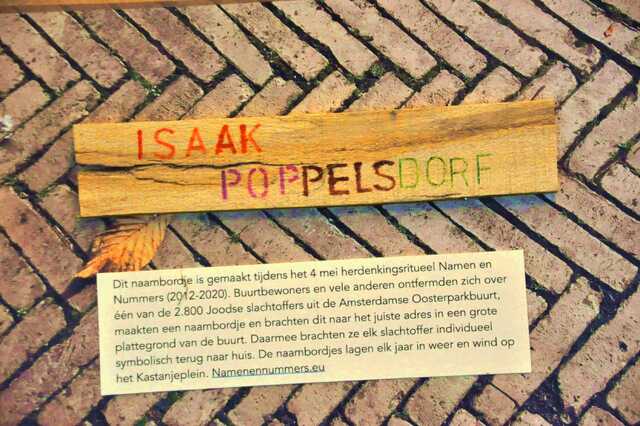 ISAAK
POPPELSDORF
Dit naambordje is gemaakt tijdens het 4 mei herdenkingsritueel Namen en
Nummers (2012-2020). Buurtbewoners en vele anderen ontfermden zich over
één van de 2.800 Joodse slachtoffers uit de Amsterdamse Oosterparkbuurt,
maakten een naambordje en brachten dit naar het juiste adres in een grote
plattegrond van de buurt. Daarmee brachten ze elk slachtoffer individueel
symbolisch terug naar huis. De naambordjes lagen elk jaar in weer en wind op
het Kastanjeplein. Namenennummers.eu